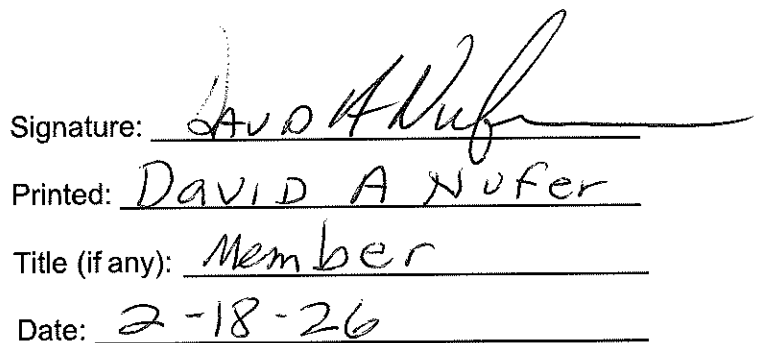 Signature: David A Nufer
Printed: David A Nufer
Title (if any): Member
Date: 2-18-26